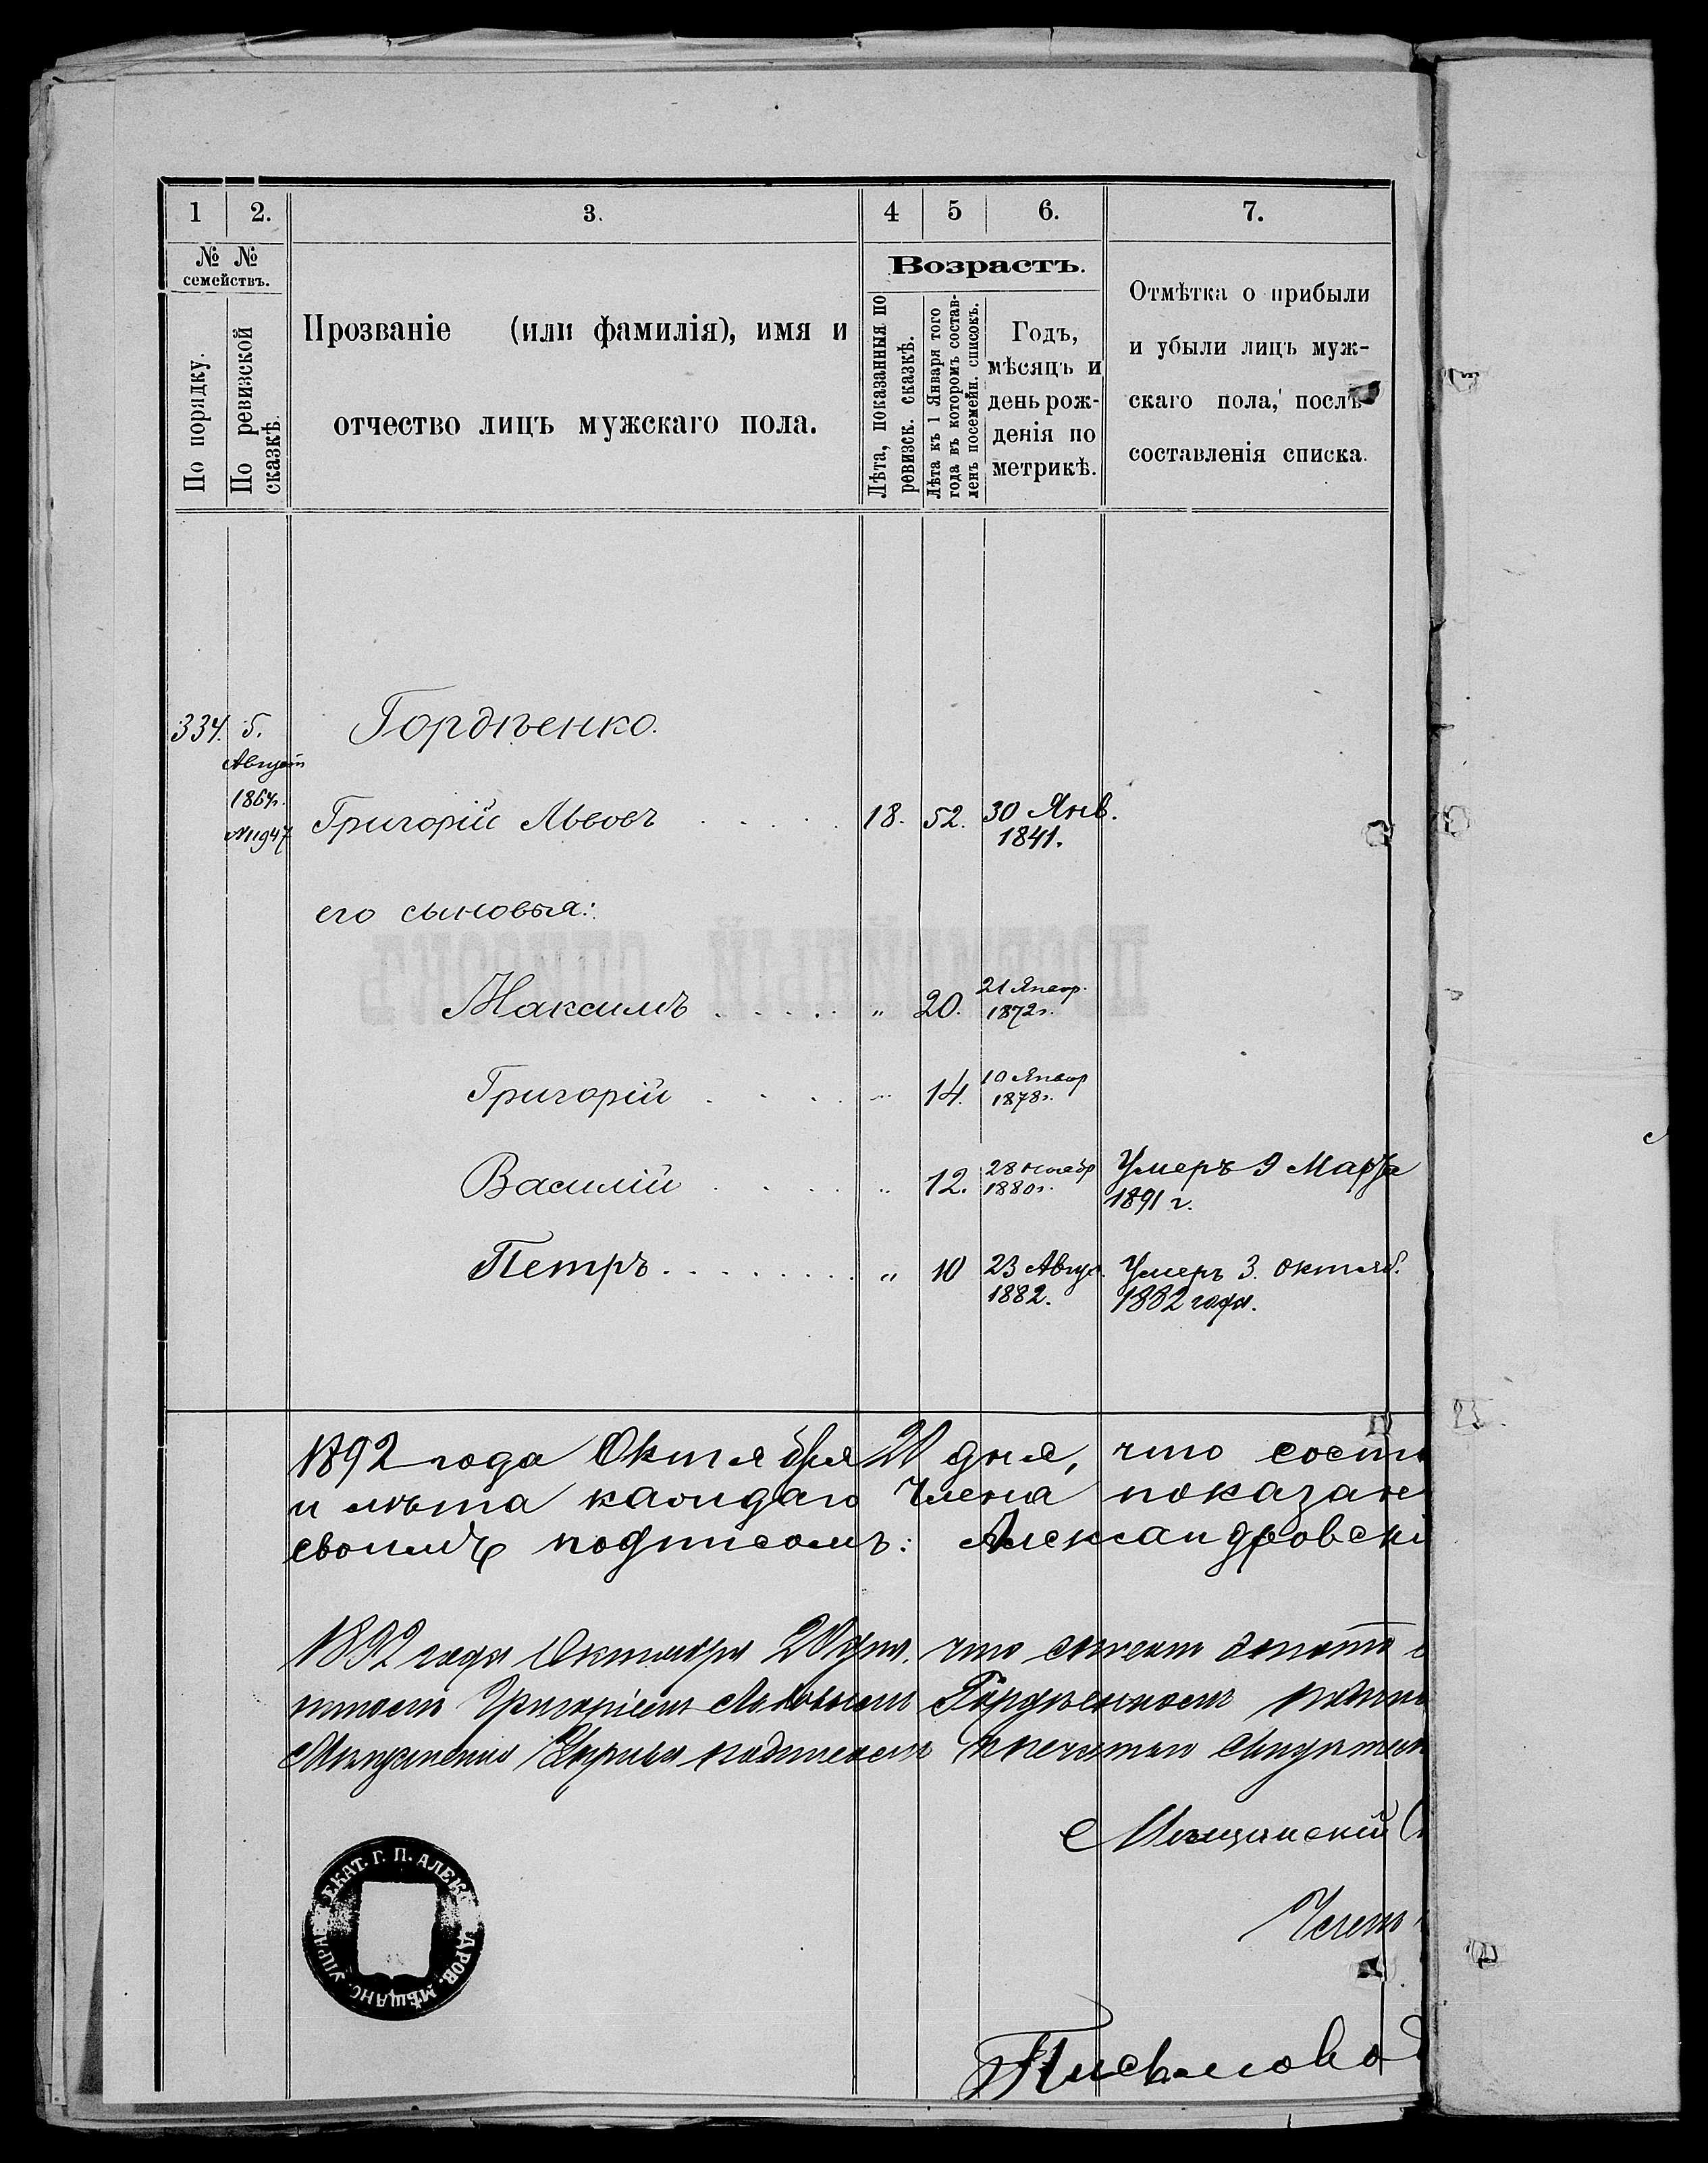 1 2. 3. 4 5 6. 7.
№ №
семействъ.
По порядку.
По ревизской
сказкѣ.
Прозваніе (или фамилія), имя и
отчество лицъ мужскаго пола.
Возрастъ.
Лѣта, показанныя по
ревизск. сказкѣ.
Лѣта къ 1 Января того
года въ которомъ состав-
ленъ посемейн. списокъ.
Годъ,
мѣсяцъ и
день рож-
денія по
метрикѣ.
Отмѣтка о прибыли
и убыли лицъ муж-
скаго пола, послѣ
составленія списка.
334. 5. Гордѣенко.
Август
1864г.
№11947
Григорій Львовъ 18. 52. 30 Янв.
1841.
его сыновья:
Максимъ „ 20. 21 Январ.
1872г.
Григорій „ 14. 10 Январ
1878г.
Василій „ 12. 28 1880г. Умеръ 9 Марта
1891 г.
Петръ „ 10 23 Авгус. Умеръ 3. октяб.
1882. 1882 года.
1892 года Октября 20 дня, что сост
и лѣта каждаго члена показан
своимъ подписомъ: Александровскі
1892 года Октября 20 дня, что
Григоріем Львовым Гордѣенком
Мѣщанскій
Член
Письмовод
ЕКАТ. Г. П. АЛЕКСАНДРОВ. МѢЩАНС. УПРА
ПОСЕМЕЙНЫЙ СПИСОКЪ